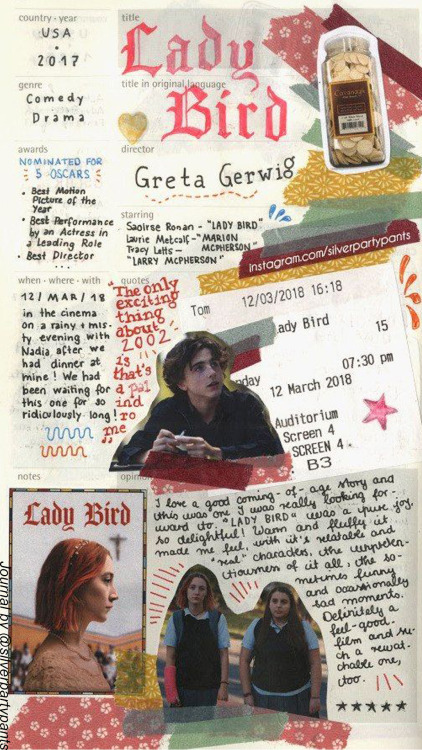 country · year
USA
•
2017
title
Lady
Bird
title in original language
genre
Comedy
Drama
awards
NOMINATED FOR
5 OSCARS
• Best Motion
Picture of the
Year
• Best Performance
by an Actress in
a Leading Role
• Best Director
...
director
Greta Gerwig
starring
Saoirse Ronan - "LADY BIRD"
Laurie Metcalf - "MARION
MCPHERSON"
Tracy Letts -
"LARRY MCPHERSON"
Instagram.com/silverpartypants
when · where · with
12/MAR/18
in the cinema
on a rainy + mis-
ty evening with
Nadia after we
had dinner at
mine! We had
been waiting for
this one for so
ridiculously long!
quotes
"The only
exciting
thing
about
2002
is
that's
a pal
ind
ro
me
Tom
12/03/2018 16:18
ady Bird
15
07:30 pm
nday
12 March 2018
Auditorium
Screen 4
SCREEN 4
B3
notes
Lady Bird
opinion
I love a good coming-of-age story and
this was one I was really looking for-
ward to. "LADY BIRD" was a pure joy,
so delightful! Warm and fluffy it
made me feel, with it's relatable and
"real" characters, the unpreten-
tiousness of it all, the so-
metimes funny
and occasionally
sad moments.
Definitely a
feel-good-
film and su-
ch a rewat-
chable one,
too.
Journal by @silverpartypants